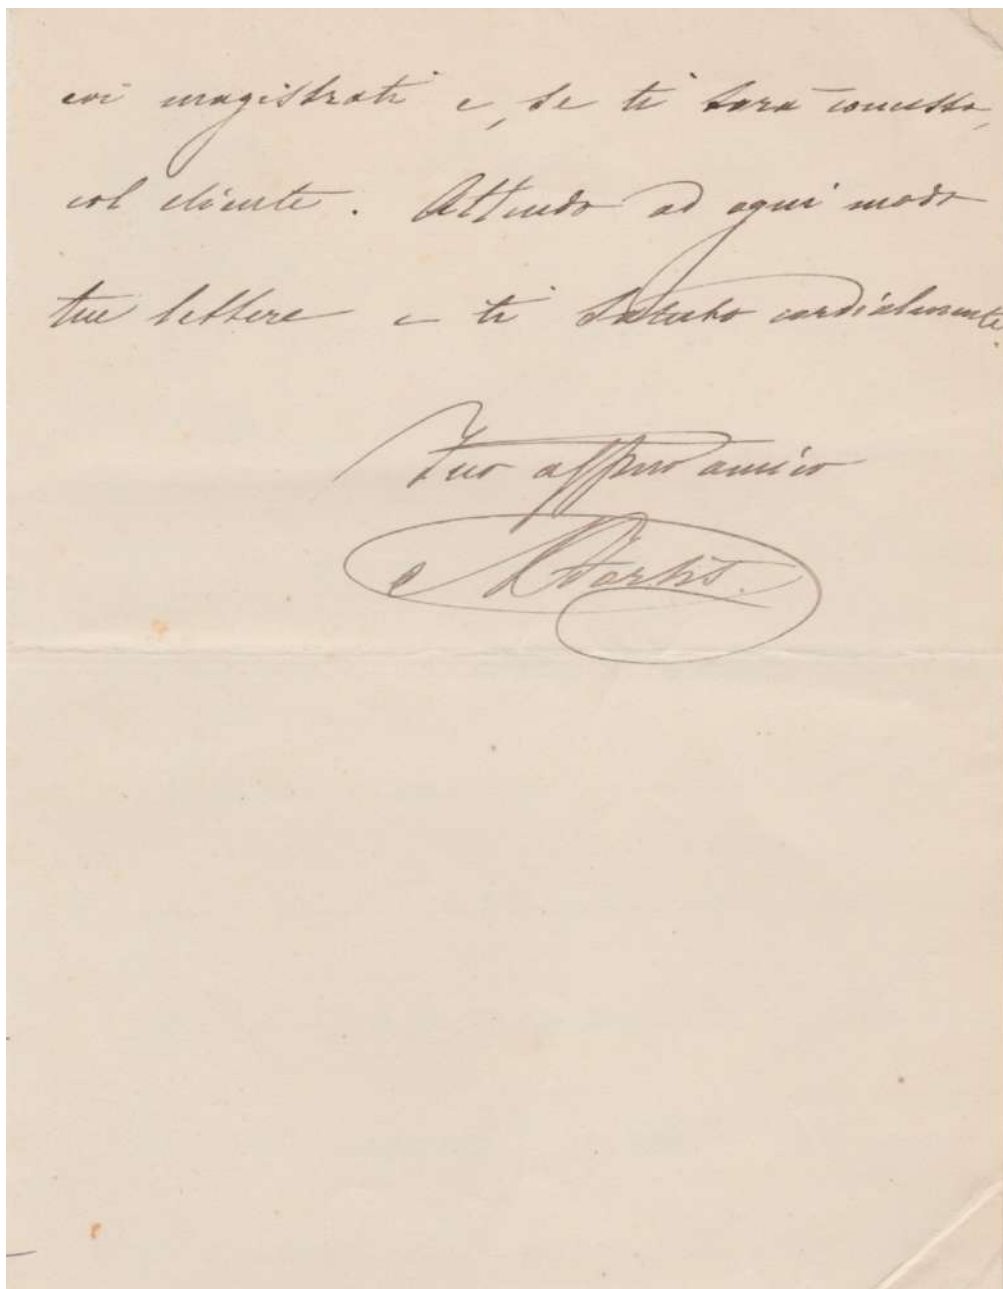 coi magistrati e, se ti sarà concesso,
col cliente. Attendo ad ogni modo
tue lettere e ti saluto cordialmente.
Tuo affmo amico
Fortis.